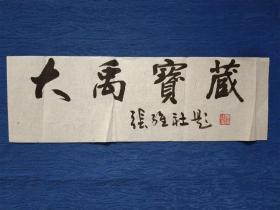 大禹寶藏
張雅社題